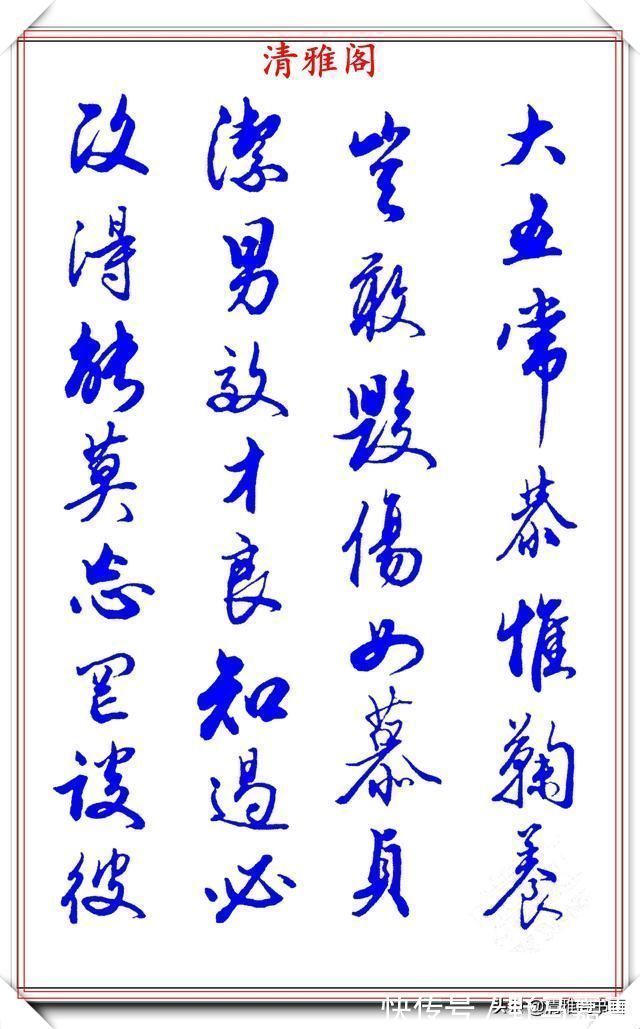 清雅阁
大五常恭惟鞠養
豈敢毀傷女慕貞
潔男效才良知過必
改得能莫忘罔談彼